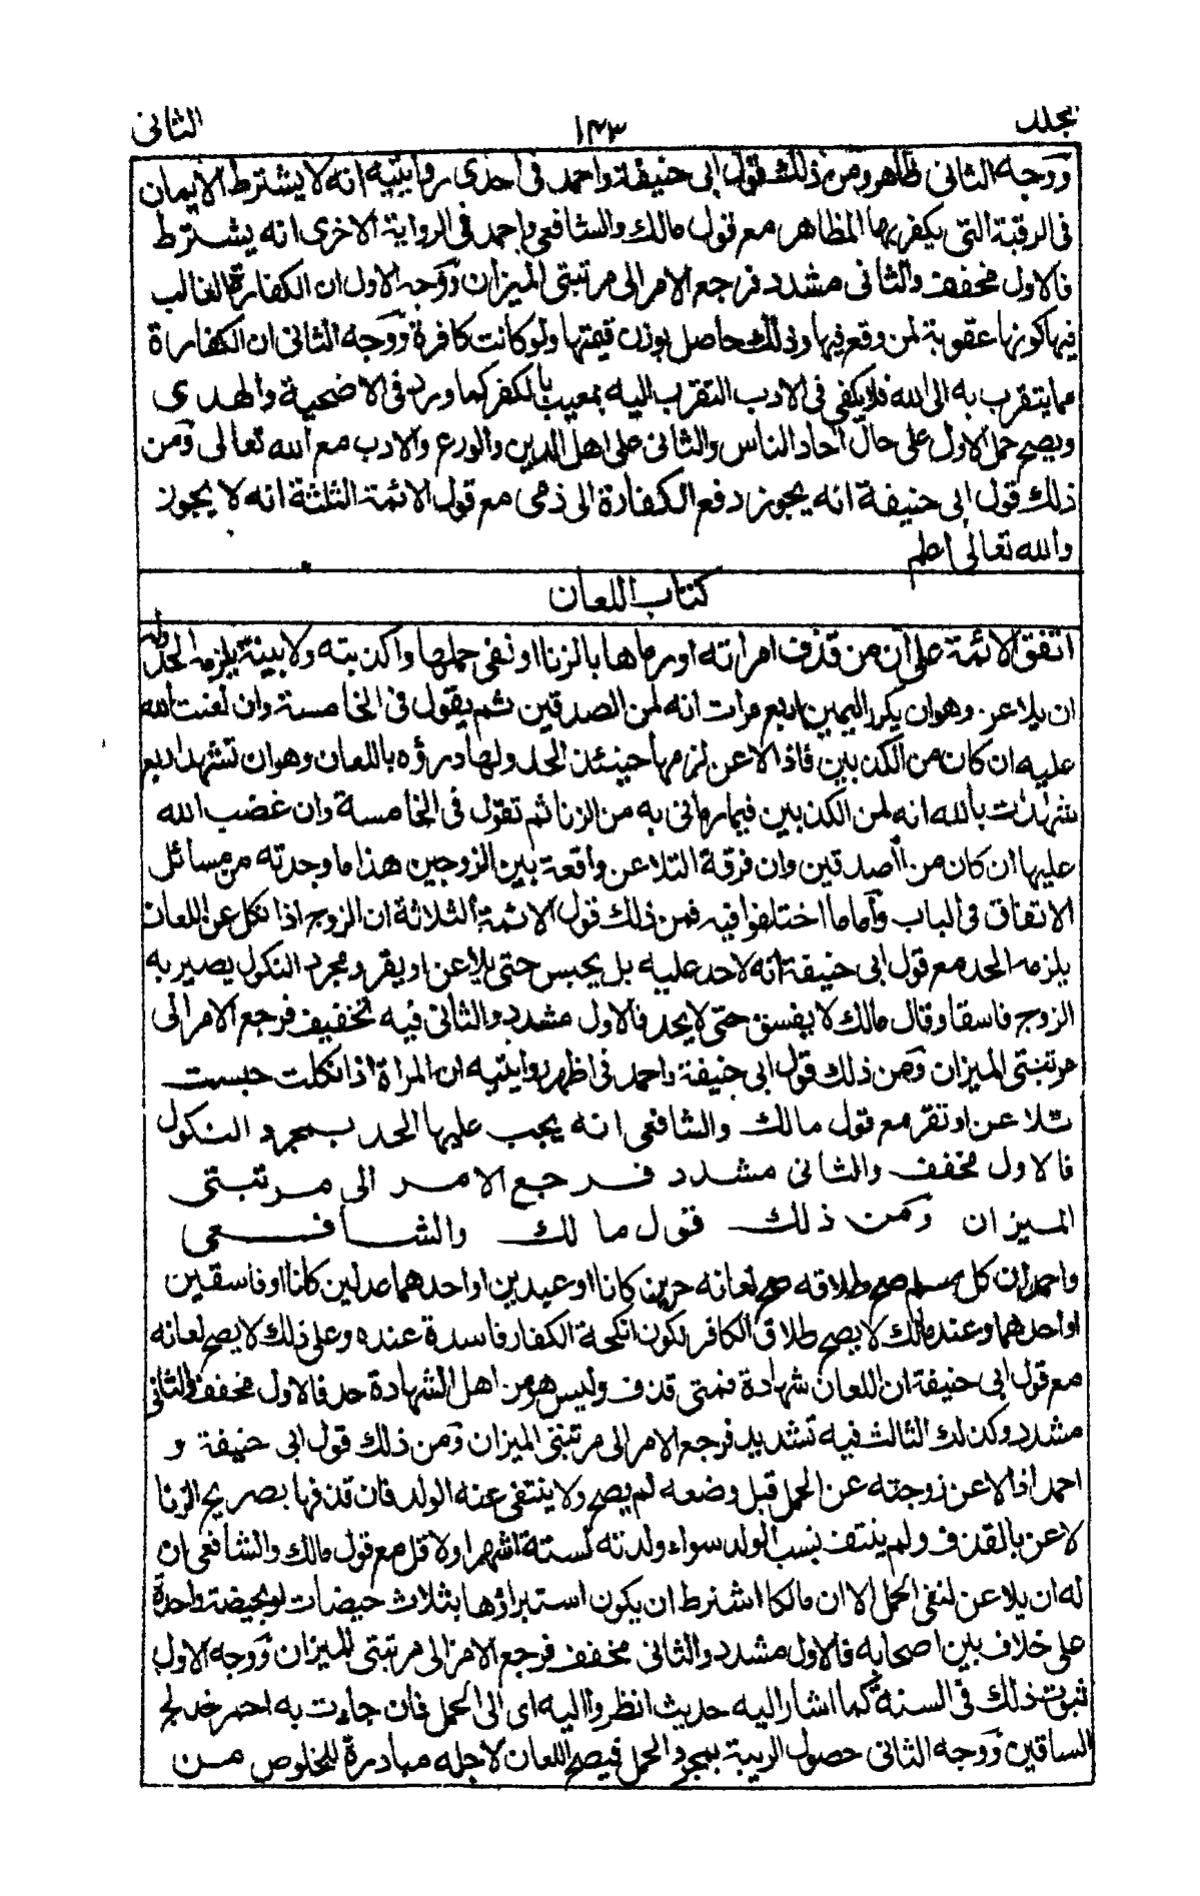 مجلد ١٢٣ الثانى
ووجه الثانى ظاهر ومن ذلك قول ابى حنيفة واحمد فى احدى روايتيه انه لا يشترط الايمان
فى الرقبة التى يكفر بها المظاهر مع قول مالك والشافعى واحمد فى الرواية الاخرى انه يشترط
فالاول مخفف والثانى مشدد فرجع الامر الى مرتبتى الميزان ووجه الاول ان الكفارة الغالب
فيها كونها عقوبة لمن وقع فيها وذلك حاصل بوزن قيمتها ولو كانت كافرة ووجه الثانى ان الكفارة
مما يتقرب به الى الله فلا يكفى فى الادب التقرب اليه بمعيب بالكفر كما ورد فى الاضحية والهدى
ويصح حمل الاول على حال احاد الناس والثانى على اهل الدين والورع والادب مع الله تعالى ومن
ذلك قول ابى حنيفة انه يجوز دفع الكفارة الى ذمى مع قول الائمة الثلثة انه لا يجوز
والله تعالى اعلم
كتاب اللعان
اتفق الائمة على ان من قذف امراته او رماها بالزنا او نفى حملها واكذبته ولا بينة يلزمه الحد وله
ان يلاعن وهو ان يكرر اليمين اربع مرات انه لمن الصدقين ثم يقول فى الخامسة وان لعنت الله
عليه ان كان من الكذبين فاذا لاعن لزمها حينئذ الحد ولها درؤه باللعان وهو ان تشهد اربع
شهادات بالله انه لمن الكذبين فيما رمانى به من الزنا ثم تقول فى الخامسة وان غضب الله
عليها ان كان من الصدقين وان فرقة التلاعن واقعة بين الزوجين هذا ما وجدته من مسائل
الاتفاق فى الباب واما ما اختلفوا فيه فمن ذلك قول الائمة الثلاثة ان الزوج اذا نكل عن اللعان
يلزمه الحد مع قول ابى حنيفة انه لا حد عليه بل يحبس حتى يلاعن او يقر ومجرد النكول يصير به
الزوج فاسقا وقال مالك لا يفسق حتى لا يحد فالاول مشدد والثانى فيه تخفيف فرجع الامر الى
مرتبتى الميزان ومن ذلك قول ابى حنيفة واحمد فى اظهر روايتيه ان المراة اذا نكلت حبست
تلاعن او تقر مع قول مالك والشافعى انه يجب عليها الحد بمجرد النكول
فالاول مخفف والثانى مشدد فرجع الامر الى مرتبتى
الميزان ومن ذلك قول مالك والشافعى
واحمد ان كل مسلم صح طلاقه صح لعانه حرين كانا او عبدين او احدهما عدلين كانا او فاسقين
او احدهما وعند مالك لا يصح طلاق الكافر لكون انكحة الكفار فاسدة عنده وعلى ذلك لا يصح لعانه
مع قول ابى حنيفة ان اللعان شهادة فمتى قذف وليس هو من اهل الشهادة حد فالاول مخفف والثانى
مشدد وكذلك الثالث فيه تشديد فرجع الامر الى مرتبتى الميزان ومن ذلك قول ابى حنيفة و
احمد اذا لاعن زوجته عن الحمل قبل وضعه لم يصح ولا ينتفى عنه الولد فان قذفها بصريح الزنا
لاعن بالقذف ولم ينتف نسب الولد سواء ولدته لستة اشهر او لاقل مع قول مالك والشافعى ان
له ان يلاعن لنفى الحمل الا ان مالكا اشترط ان يكون استبراؤها بثلاث حيضات او بحيضة واحدة
على خلاف بين اصحابه فالاول مشدد والثانى مخفف فرجع الامر الى مرتبتى الميزان ووجه الاول
ثبوت ذلك فى السنة كما اشار اليه حديث انظروا اليه اى الى الحمل فان جاءت به احمر خدلج
الساقين ووجه الثانى حصول الريبة بمجرد الحمل فيصح اللعان لاجله مبادرة للخلوص من